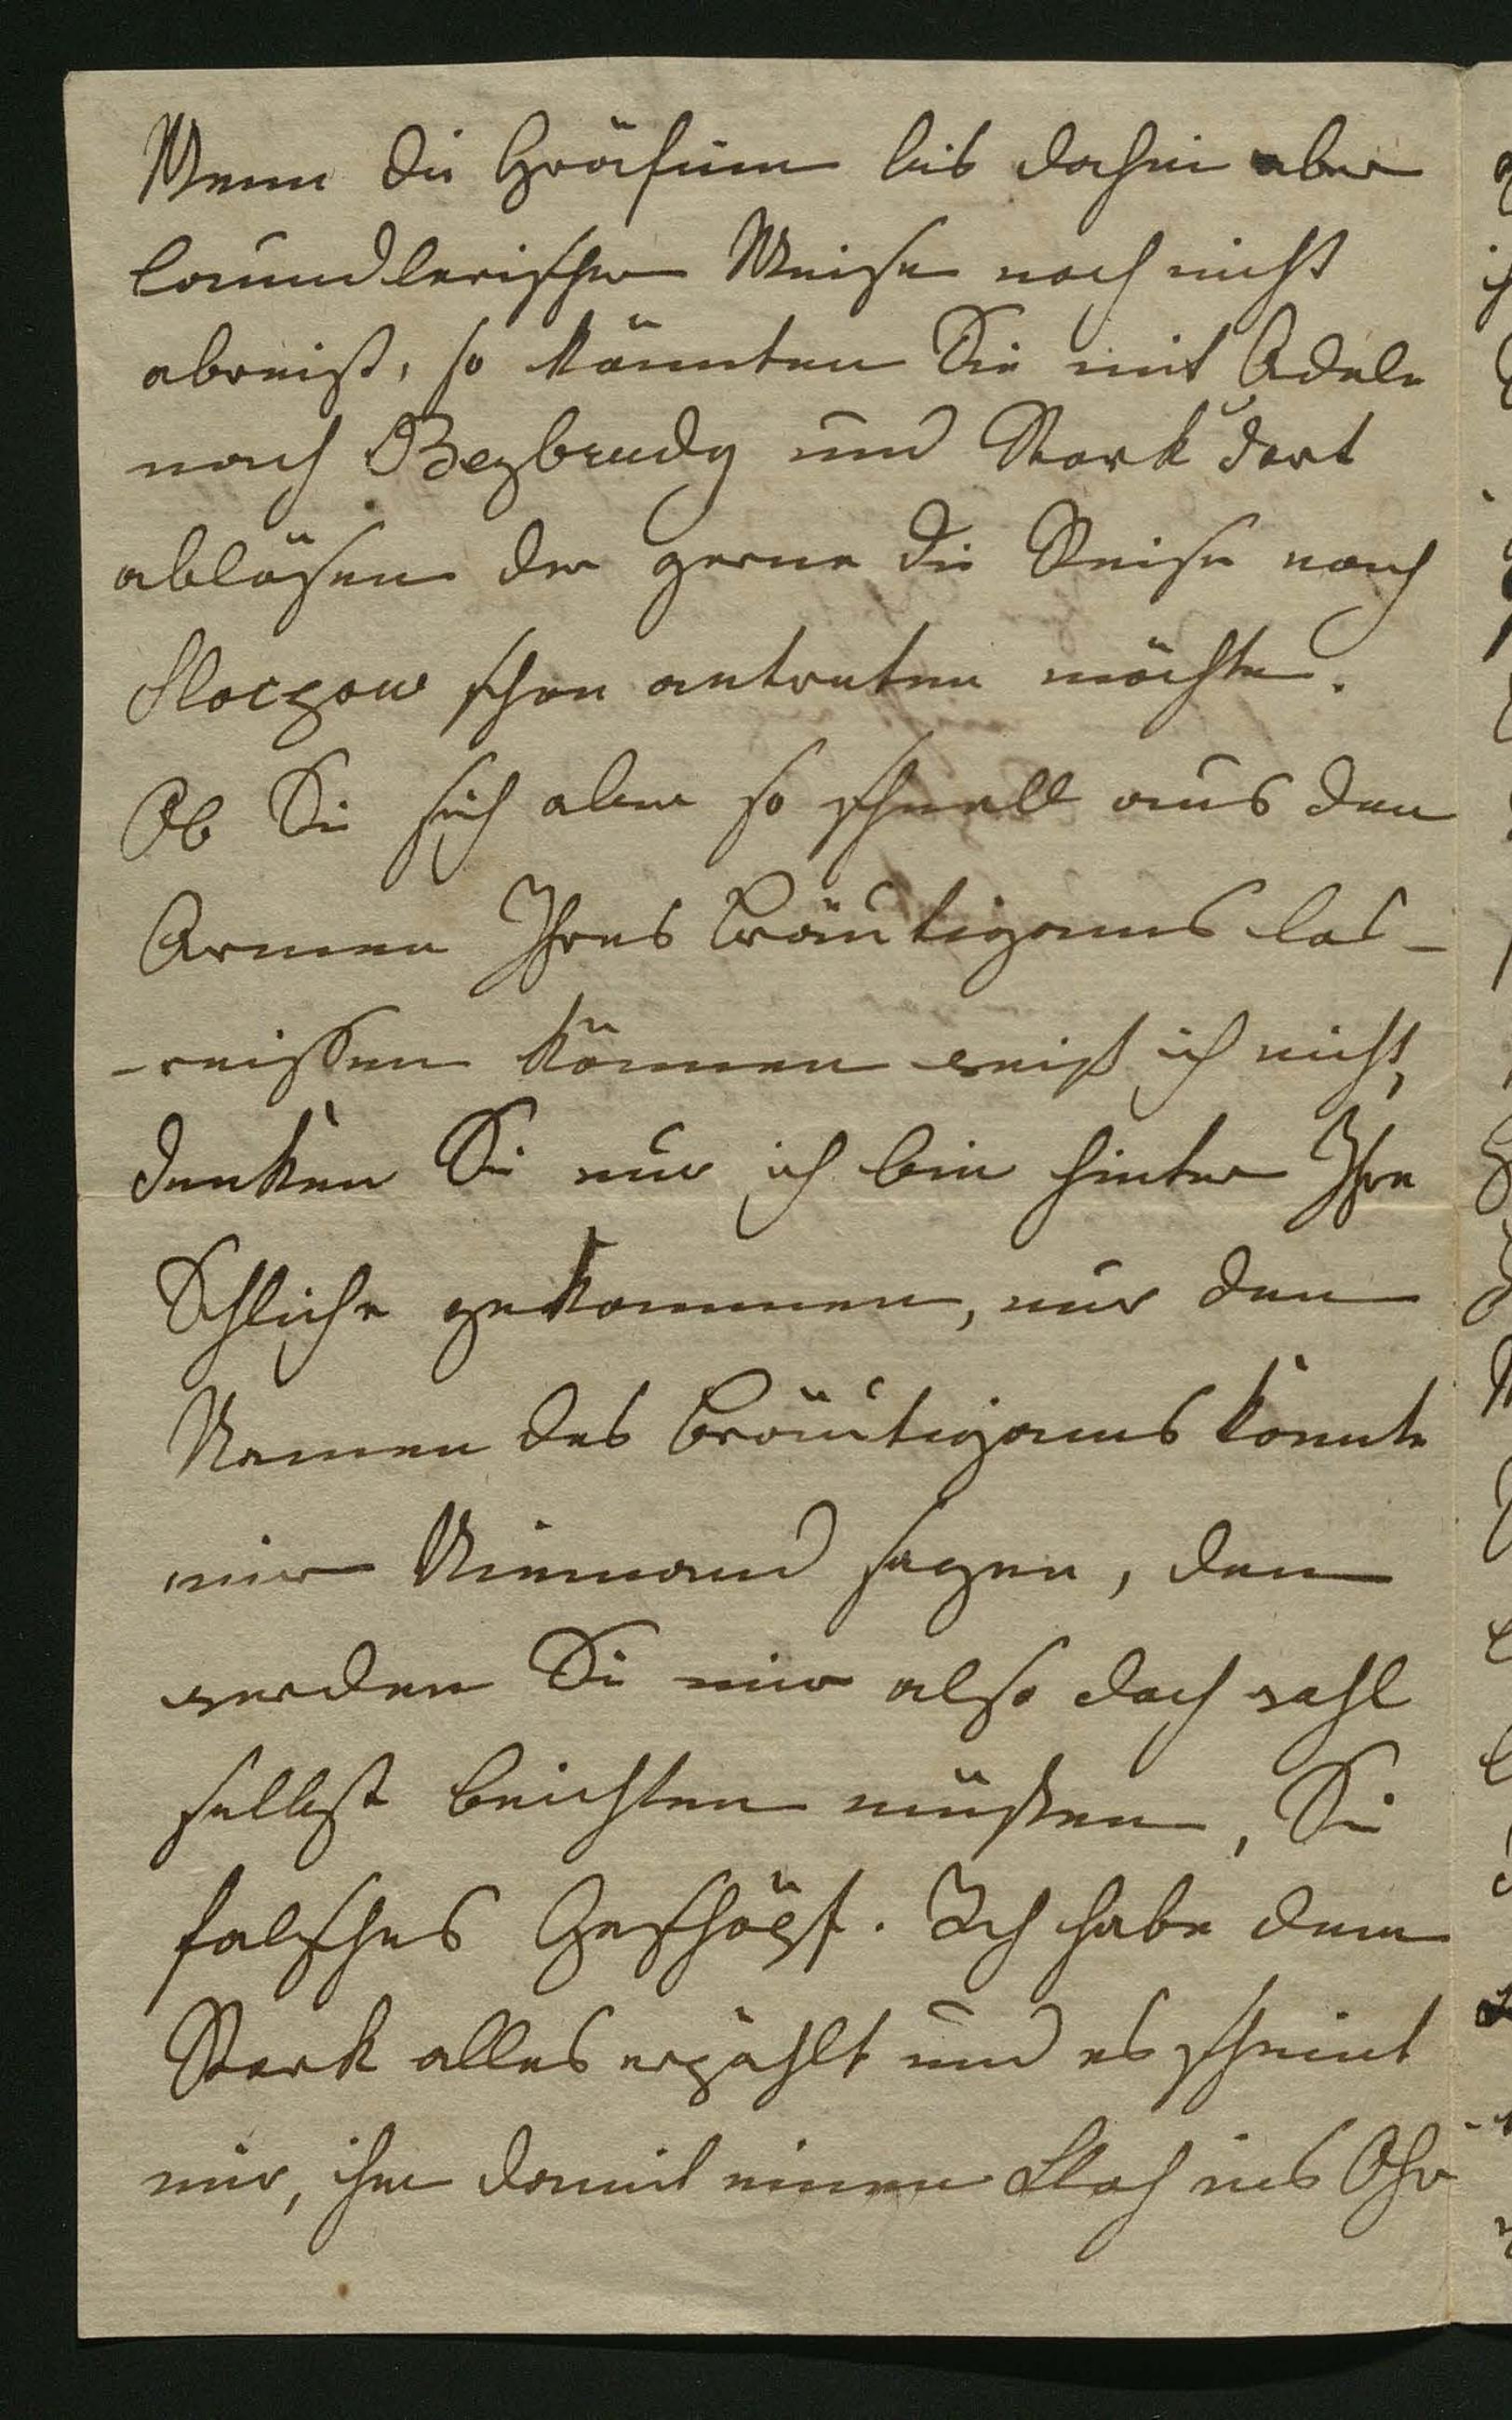 Wenn die Gräfinn bis dahin aber
baundlerischer Weise noch nicht
abreist, so könnten Sie mit Adele
nach Bezbrudy und Stark dort
ablösen der gerne die Reise nach
Sloczow schon antreten möchte.
Ob Sie sich aber so schnell aus den
Armen Ihres Bräutigams los-
-reissen können weiß ich nicht,
denken Sie nur ich bin hinter Ihre
Schliche gekommen, nur den
Namen des Bräutigams konnte
mir Niemand sagen, den
werden Sie mir also doch wohl
selbst beichten müßen, Sie
falsches Geschöpf. Ich habe dem
Stark alles erzählt und es scheint
mir, ihm damit einen Floh ins Ohr